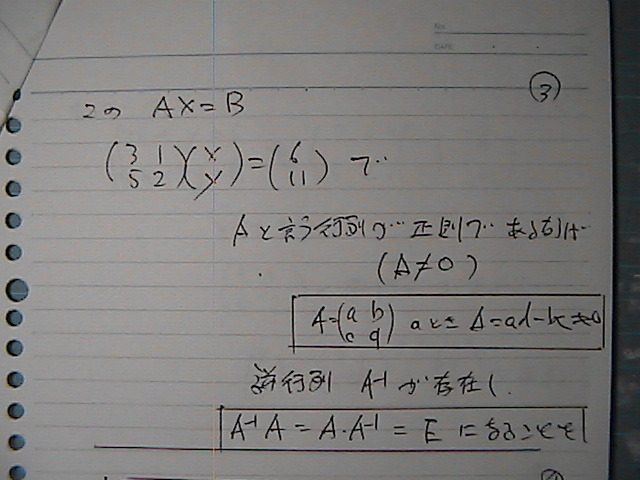 No.
DATE
③
この AX=B
(3 1
5 2)(x
y)=(6
11) で
Aと言う行列が 正則で あるならば
(Δ≠0)
A=(a b
c d) のとき Δ=ad-bc≠0
逆行列 A⁻¹が存在し.
A⁻¹A=A・A⁻¹=E になることを